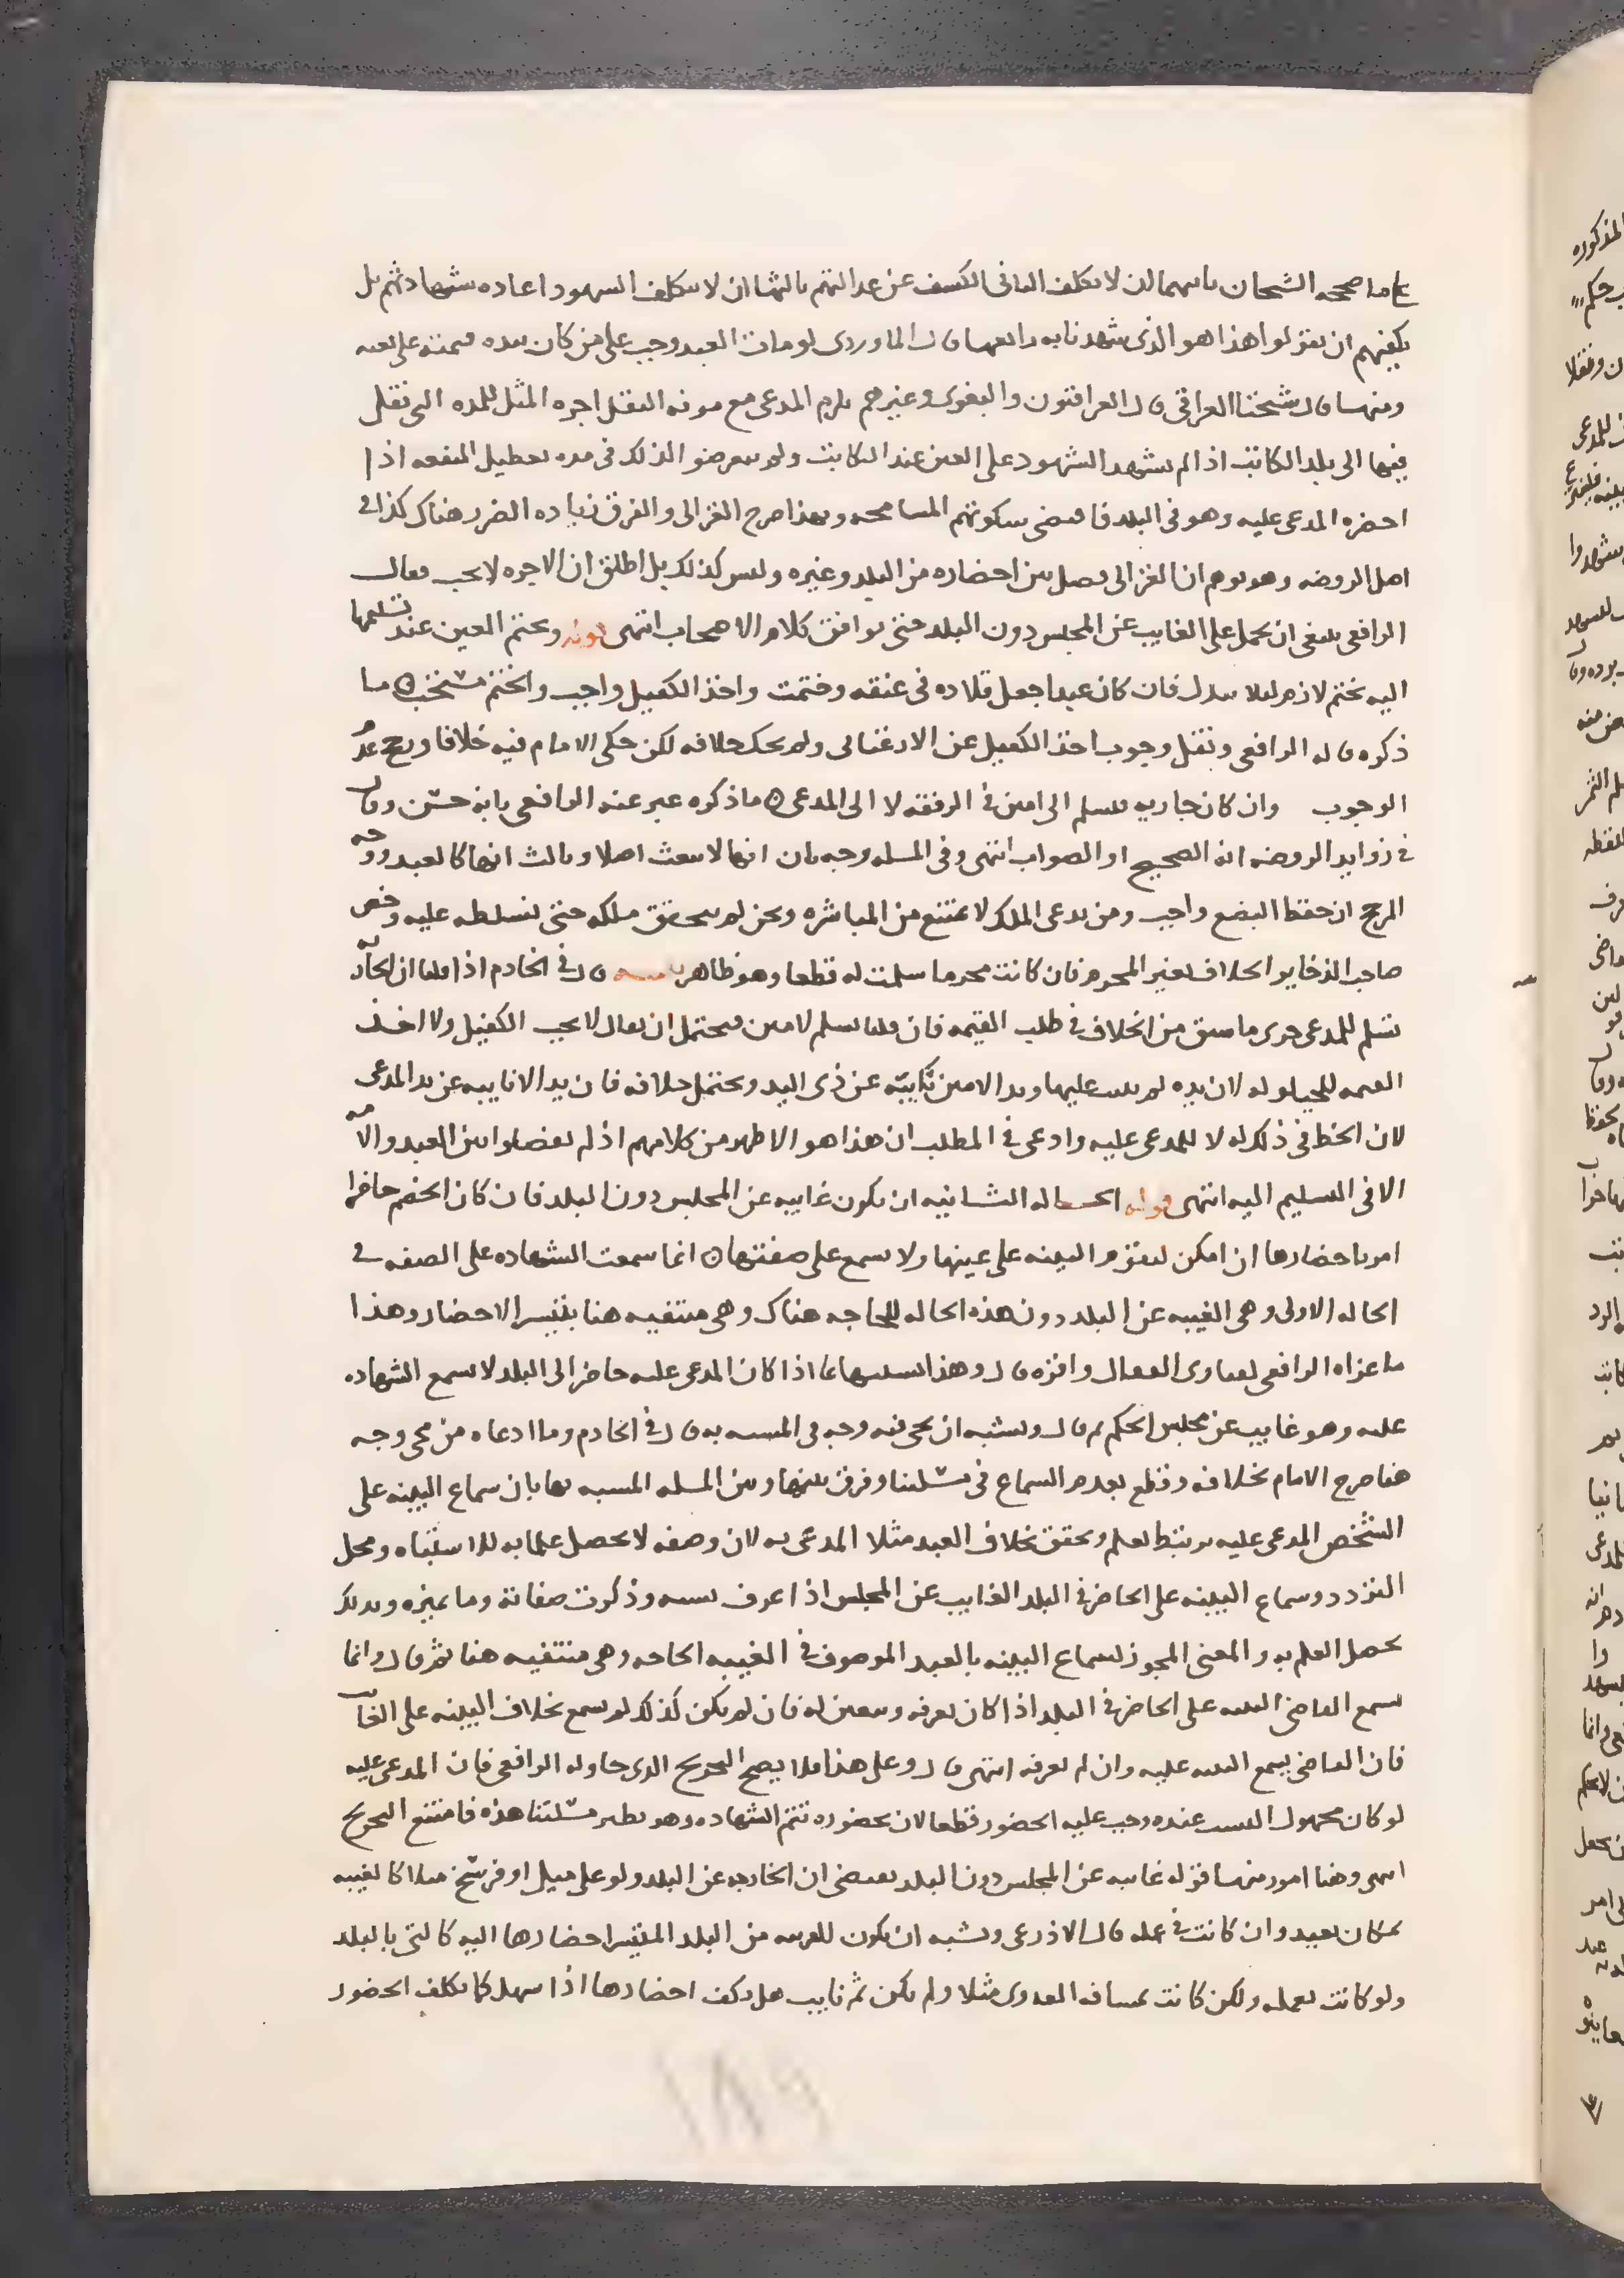 على ما صححه الشيخان ثانيهما لان لا يكلف الثاني الكشف عن عدالتهم ثالثها ان لا يكلف الشهود اعاده شهادتهم بل
يكفيهم ان يقولوا هذا هو الذي شهدنا به رابعها قال الماوردي لو مات العبد وجب على من كان بيده قيمته على
ومنها قال شيخنا العراقي قال العراقيون والبغوي وغيرهم يلزم المدعي مع مونه النقل اجره المثل للمده التي نقل
فيها الى بلد الكاتب اذا لم يشهد الشهود على العين عند الكاتب ولم يتعرضوا لذلك في مده تعطيل المنفعه اذا
احضره المدعى عليه وهو في البلد فاقتضى سكوتهم المسامحه وبهذا صرح الغزالي والفرق زياده الضرر هناك كذا في
اصل الروضه وهو يوهم ان الغزالي فصل بين احضاره من البلد وغيره وليس كذلك بل اطلق ان الاجره لا يجب فقال
الرافعي ينبغي ان يحمل على الغايب عن المجلس دون البلد حتى يوافق كلام الاصحاب انتهى قوله ويختم العين عند تسليمها
اليه بختم لازم ليلا يبدل فان كان عبدا جعل قلاده في عنقه وختمت واخذ الكفيل واجب والختم مستحب ما
ذكره قاله الرافعي ونقل وجوب اخذ الكفيل عن الارغياني ولم يحك خلافه لكن حكى الامام فيه خلافا ورجح عدم
الوجوب وان كان جاريه فيسلم الى امين في الرفقه لا الى المدعي ما ذكره عبر عنه الرافعي بانه حسن وقال
في زوايد الروضه انه الصحيح او الصواب انتهى وفي المسله وجه ثان انها لا تبعث اصلا وثالث انها كالعبد ووجه
المرجح ان حفظ البضع واجب ومن يدعي الملك لا يمتنع من المباشره ونحن لم نتحقق ملكه حتى نسلطه عليه وخص
صاحب الذخاير الخلاف بغير المحرم فان كانت محرما سلمت له قطعا وهو ظاهر تنبيه قال في الخادم اذا قلنا ان الجاريه
تسلم للمدعي جرى ما سبق من الخلاف في طلب القيمه فان قلنا تسلم لامين فيحتمل ان يقال لا يجب الكفيل ولا اخذ
القيمه للحيلوله لان يده لم يثبت عليها ويد الامين نيابيه عن ذي اليد ويحتمل خلافه فان يد الانابيه عن يد المدعي
لان الحظ في ذلك له لا للمدعى عليه وادعى في المطلب ان هذا هو الاظهر من كلامهم اذ لم يفصلوا بين العبد والامه
الا في التسليم اليه انتهى قوله الحاله الثانيه ان يكون غايبه عن المجلس دون البلد فان كان الخصم حاضرا
امر باحضارها ان امكن لتقوم البينه على عينها ولا تسمع على صفتها انما سمعت الشهاده على الصفه في
الحاله الاولى وهي الغيبه عن البلد دون هذه الحاله للحاجه هناك وهي منتفيه هنا بتيسر الاحضار وهذا
ما عزاه الرافعي لفتاوى القفال واقره قال وهذا شبيها بما اذا كان المدعى عليه حاضرا في البلد لا تسمع الشهاده
عليه وهو غايب عن مجلس الحكم ثم قال ويشبه ان يجي فيه وجه في المشبه به قال في الخادم وما ادعاه من مجي وجه
هنا صرح الامام بخلافه وقطع بعدم السماع في مسلتنا وفرق بينها وبين المسله المشبه بها بان سماع البينه على
الشخص المدعى عليه يرتبط بعلم وتحقق بخلاف العبد مثلا المدعى به لان وصفه لا يحصل علما به للاشتباه ومحل
التردد وسماع البينه على الحاضر في البلد الغايب عن المجلس اذا عرف نسبه وذكرت صفاته وما يميزه وبذلك
يحصل العلم به والمعنى المجوز لسماع البينه بالعبد الموصوف في الغيبه الحاجه وهي منتفيه هنا ثم قال وانما
يسمع القاضي البينه على الحاضر في البلد اذا كان يعرفه ويتعين له فان لم يكن كذلك لم يسمع بخلاف البينه على الغايب
فان القاضي يسمع البينه عليه وان لم يعرفه انتهى قال وعلى هذا فلا يصح التخريج الذي حاوله الرافعي فان المدعى عليه
لو كان مجهول النسب عنده وجب عليه الحضور قطعا لان بحضوره تتم الشهاده وهو نظير مسلتنا هذه فامتنع التخريج
انتهى وهنا امور منها قوله غايبه عن المجلس دون البلد يقتضي ان الخارجه عن البلد ولو على ميل او فرسخ مثلا كالغيبه
بمكان بعيد وان كانت في عمله قال الاذرعي ويشبه ان يكون القريبه من البلد المتيسر احضارها اليه كالتي بالبلد
ولو كانت بعمله ولكن كانت بمسافه العدوى مثلا ولم يكن ثم نايب هل يكلف احضارها اذا سهل كما يكلف الحضور